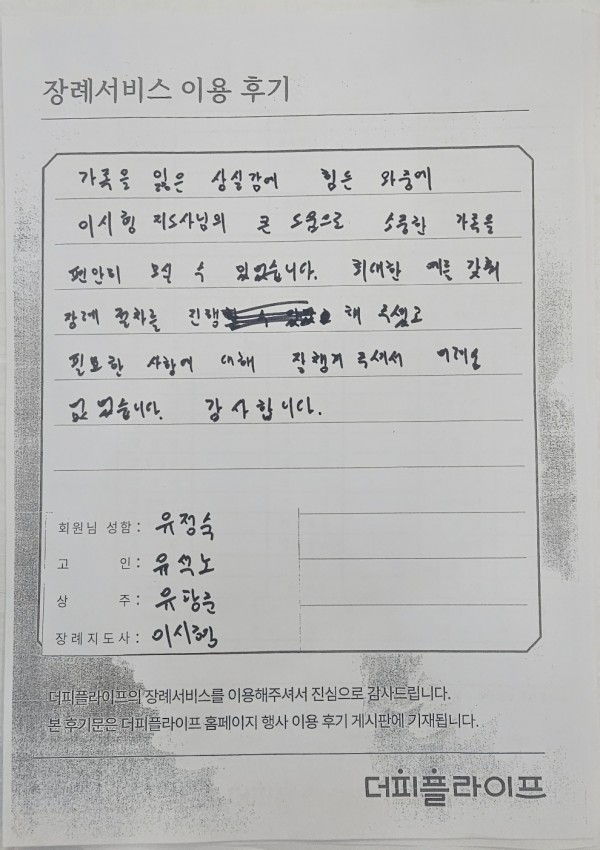 장례서비스 이용 후기
가족을 잃은 상실감에 힘든 와중에
이시형 지도사님의 큰 도움으로 소중한 가족을
편안히 모실 수 있었습니다. 최대한 예를 갖춰
장례 절차를 진행 해 주셨고
필요한 사항에 대해 잘 챙겨 주셔서 어려움
없었습니다. 감사합니다.
회원님 성함 : 유정숙
고 인 : 유석노
상 주 :
장례지도사 : 이시형
더피플라이프의 장례서비스를 이용해주셔서 진심으로 감사드립니다.
본 후기문은 더피플라이프 홈페이지 행사 이용 후기 게시판에 기재됩니다.
더피플라이프